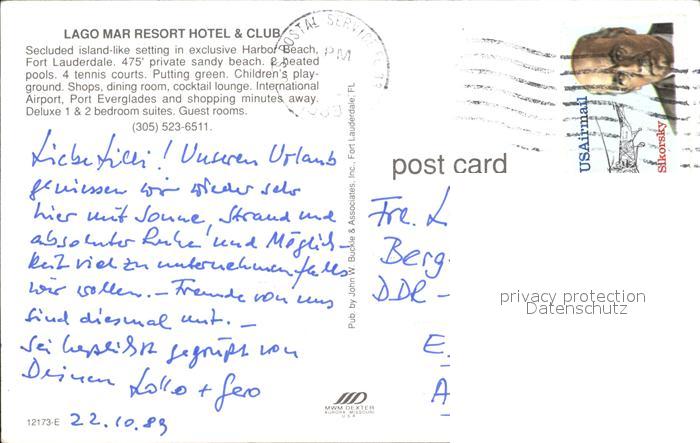 LAGO MAR RESORT HOTEL & CLUB
Secluded island-like setting in exclusive Harbor Beach,
Fort Lauderdale. 475' private sandy beach. 2 heated
pools. 4 tennis courts. Putting green. Children's play-
ground. Shops, dining room, cocktail lounge. International
Airport, Port Everglades and shopping minutes away.
Deluxe 1 & 2 bedroom suites. Guest rooms.
(305) 523-6511.
Liebe Lilli! Unseren Urlaub
geniessen wir wieder sehr
hier mit Sonne, Strand und
absoluter Ruhe und Möglich-
keit viel zu unternehmen falls
wir wollen. – Freunde von uns
sind diesmal mit. –
Sei herzlichst gegrüßt von
Deinen Lollo + Gero
12173-E 22.10.89
Pub. by John W. Buckle & Associates, Inc., Fort Lauderdale, FL
MWM DEXTER
AURORA MISSOURI
USA
POSTAL SERVICE
PM
USAirmail
Sikorsky
post card
Fr. L
Berg
DDR -
E.
A
privacy protection
Datenschutz